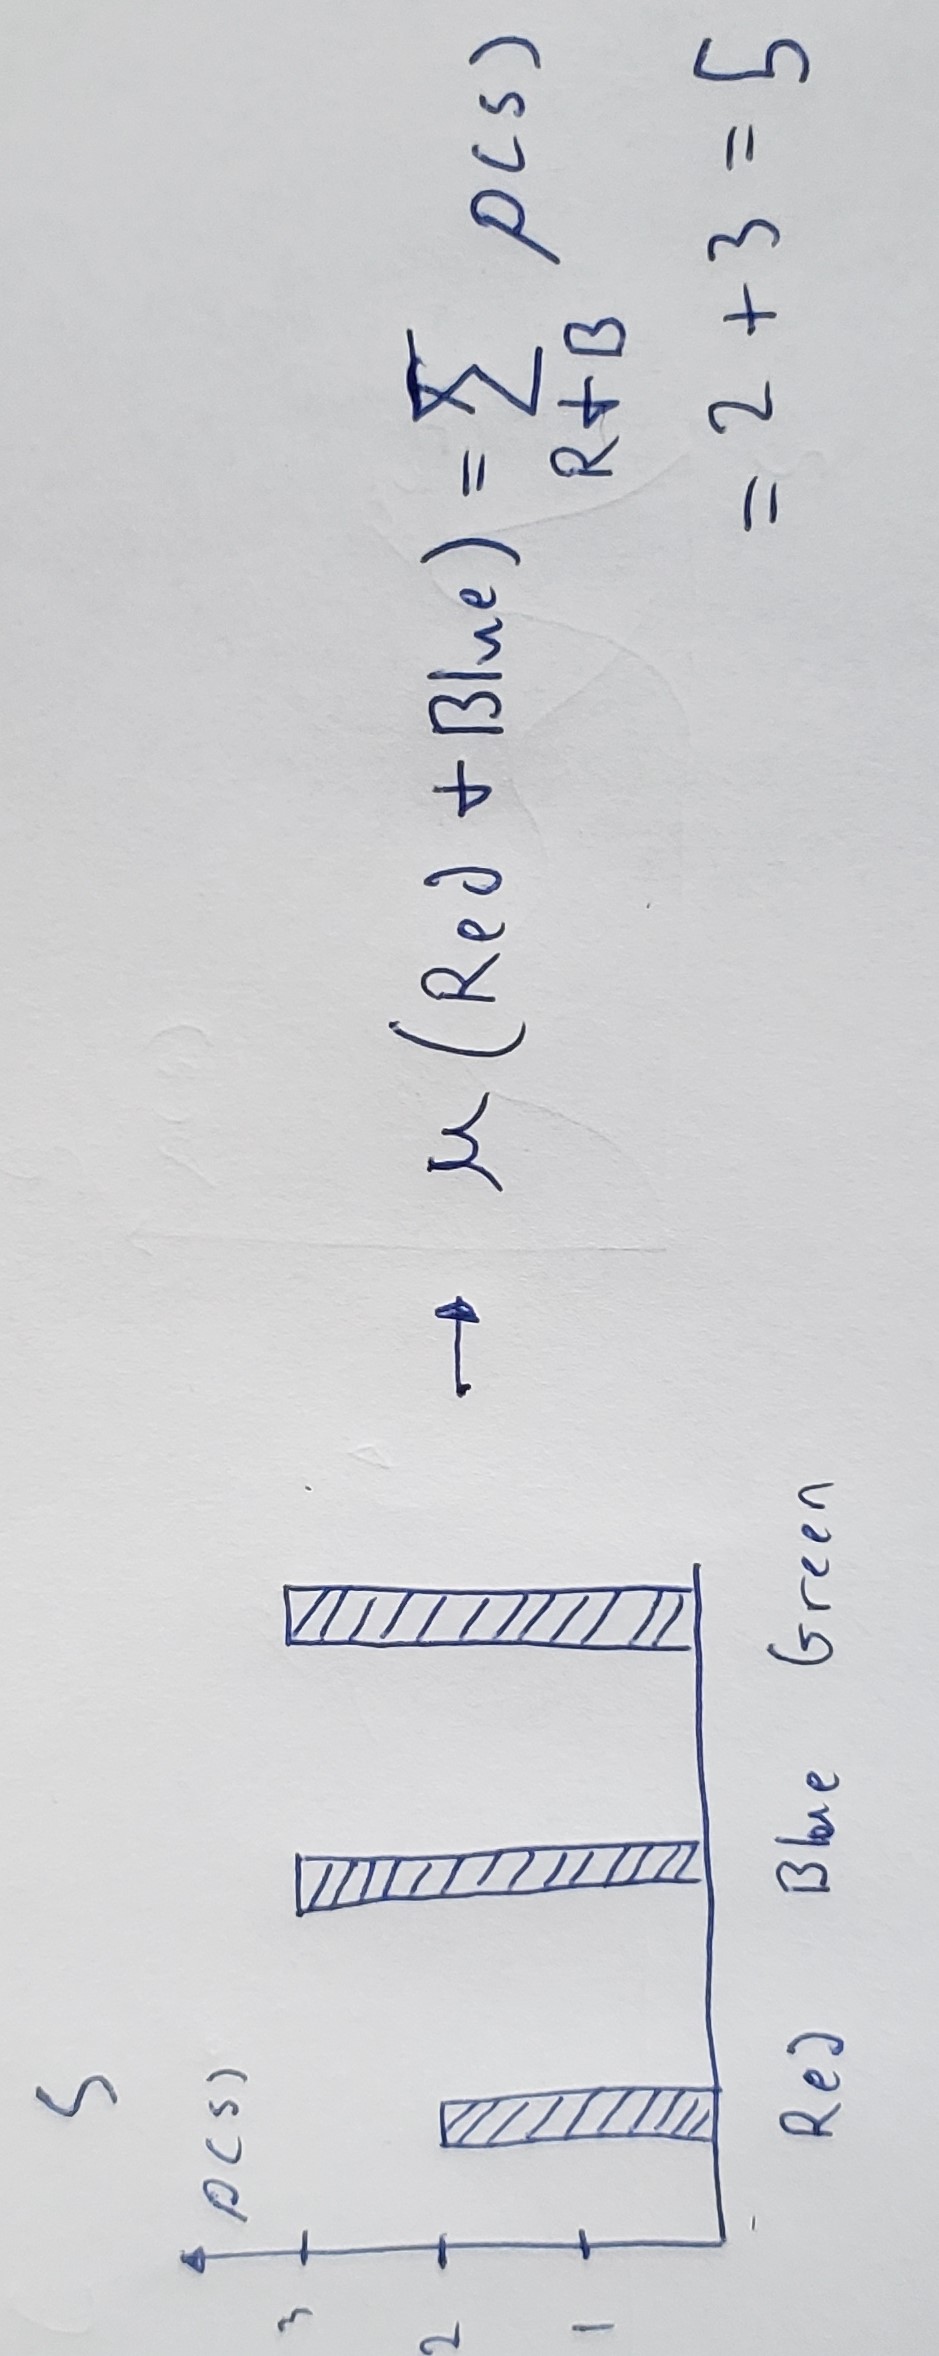 S
p(s)
3
2
1
Red Blue Green
→ μ(Red + Blue) = ∑ p(s)
R+B
= 2 + 3 = 5